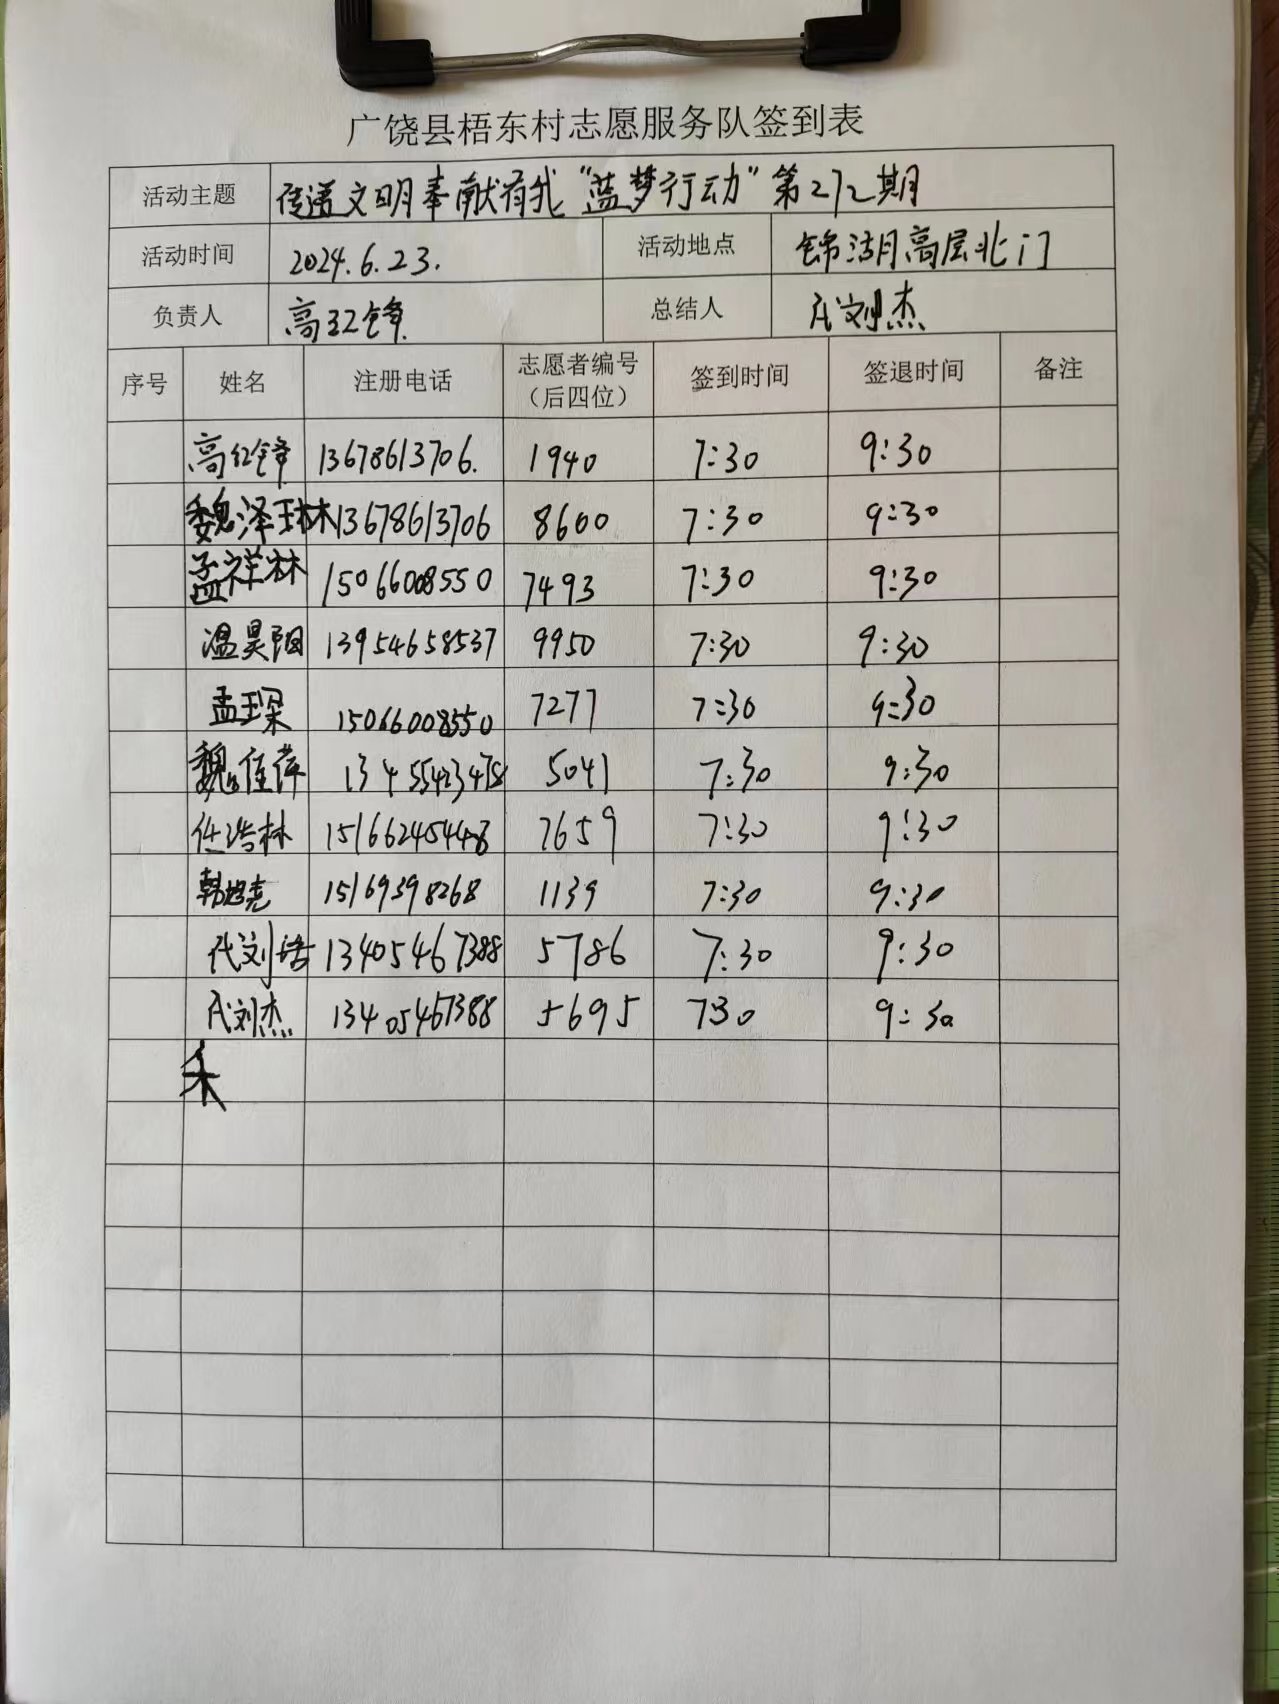 广饶县梧东村志愿服务队签到表
活动主题 传递文明奉献有我“蓝梦行动”第272期
活动时间 2024.6.23. 活动地点 锦湖月高层北门
负责人 高红锋 总结人 代刘杰
序号 姓名 注册电话 志愿者编号（后四位） 签到时间 签退时间 备注
高红锋 13678613706. 1940 7:30 9:30
魏泽琳 13678613706 8600 7:30 9:30
孟祥林 15066008550 7493 7:30 9:30
温昊阳 13954658537 9950 7:30 9:30
孟琛 15066008550 7277 7:30 9:30
魏佳萍 13455423478 5041 7:30 9:30
任浩林 15166245448 7659 7:30 9:30
韩 15169398268 1139 7:30 9:30
代刘 13405467388 5786 7:30 9:30
代刘杰 13405467388 5695 730 9:30